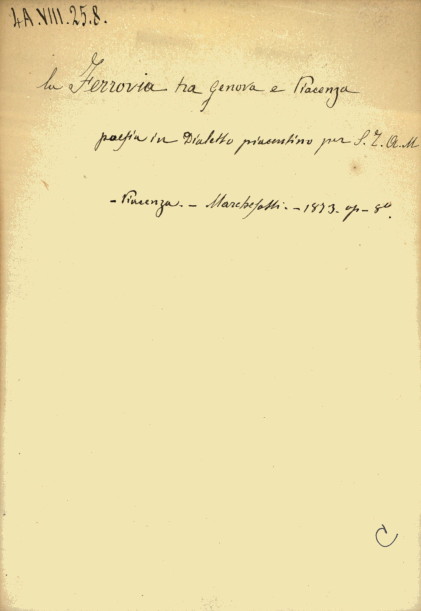 4A.VIII.25.8.
la Ferrovia tra Genova e Piacenza
poesia in Dialetto piacentino per S. Z. A. M
- Piacenza. - Marchesotti. - 1873. op - 8º.
C